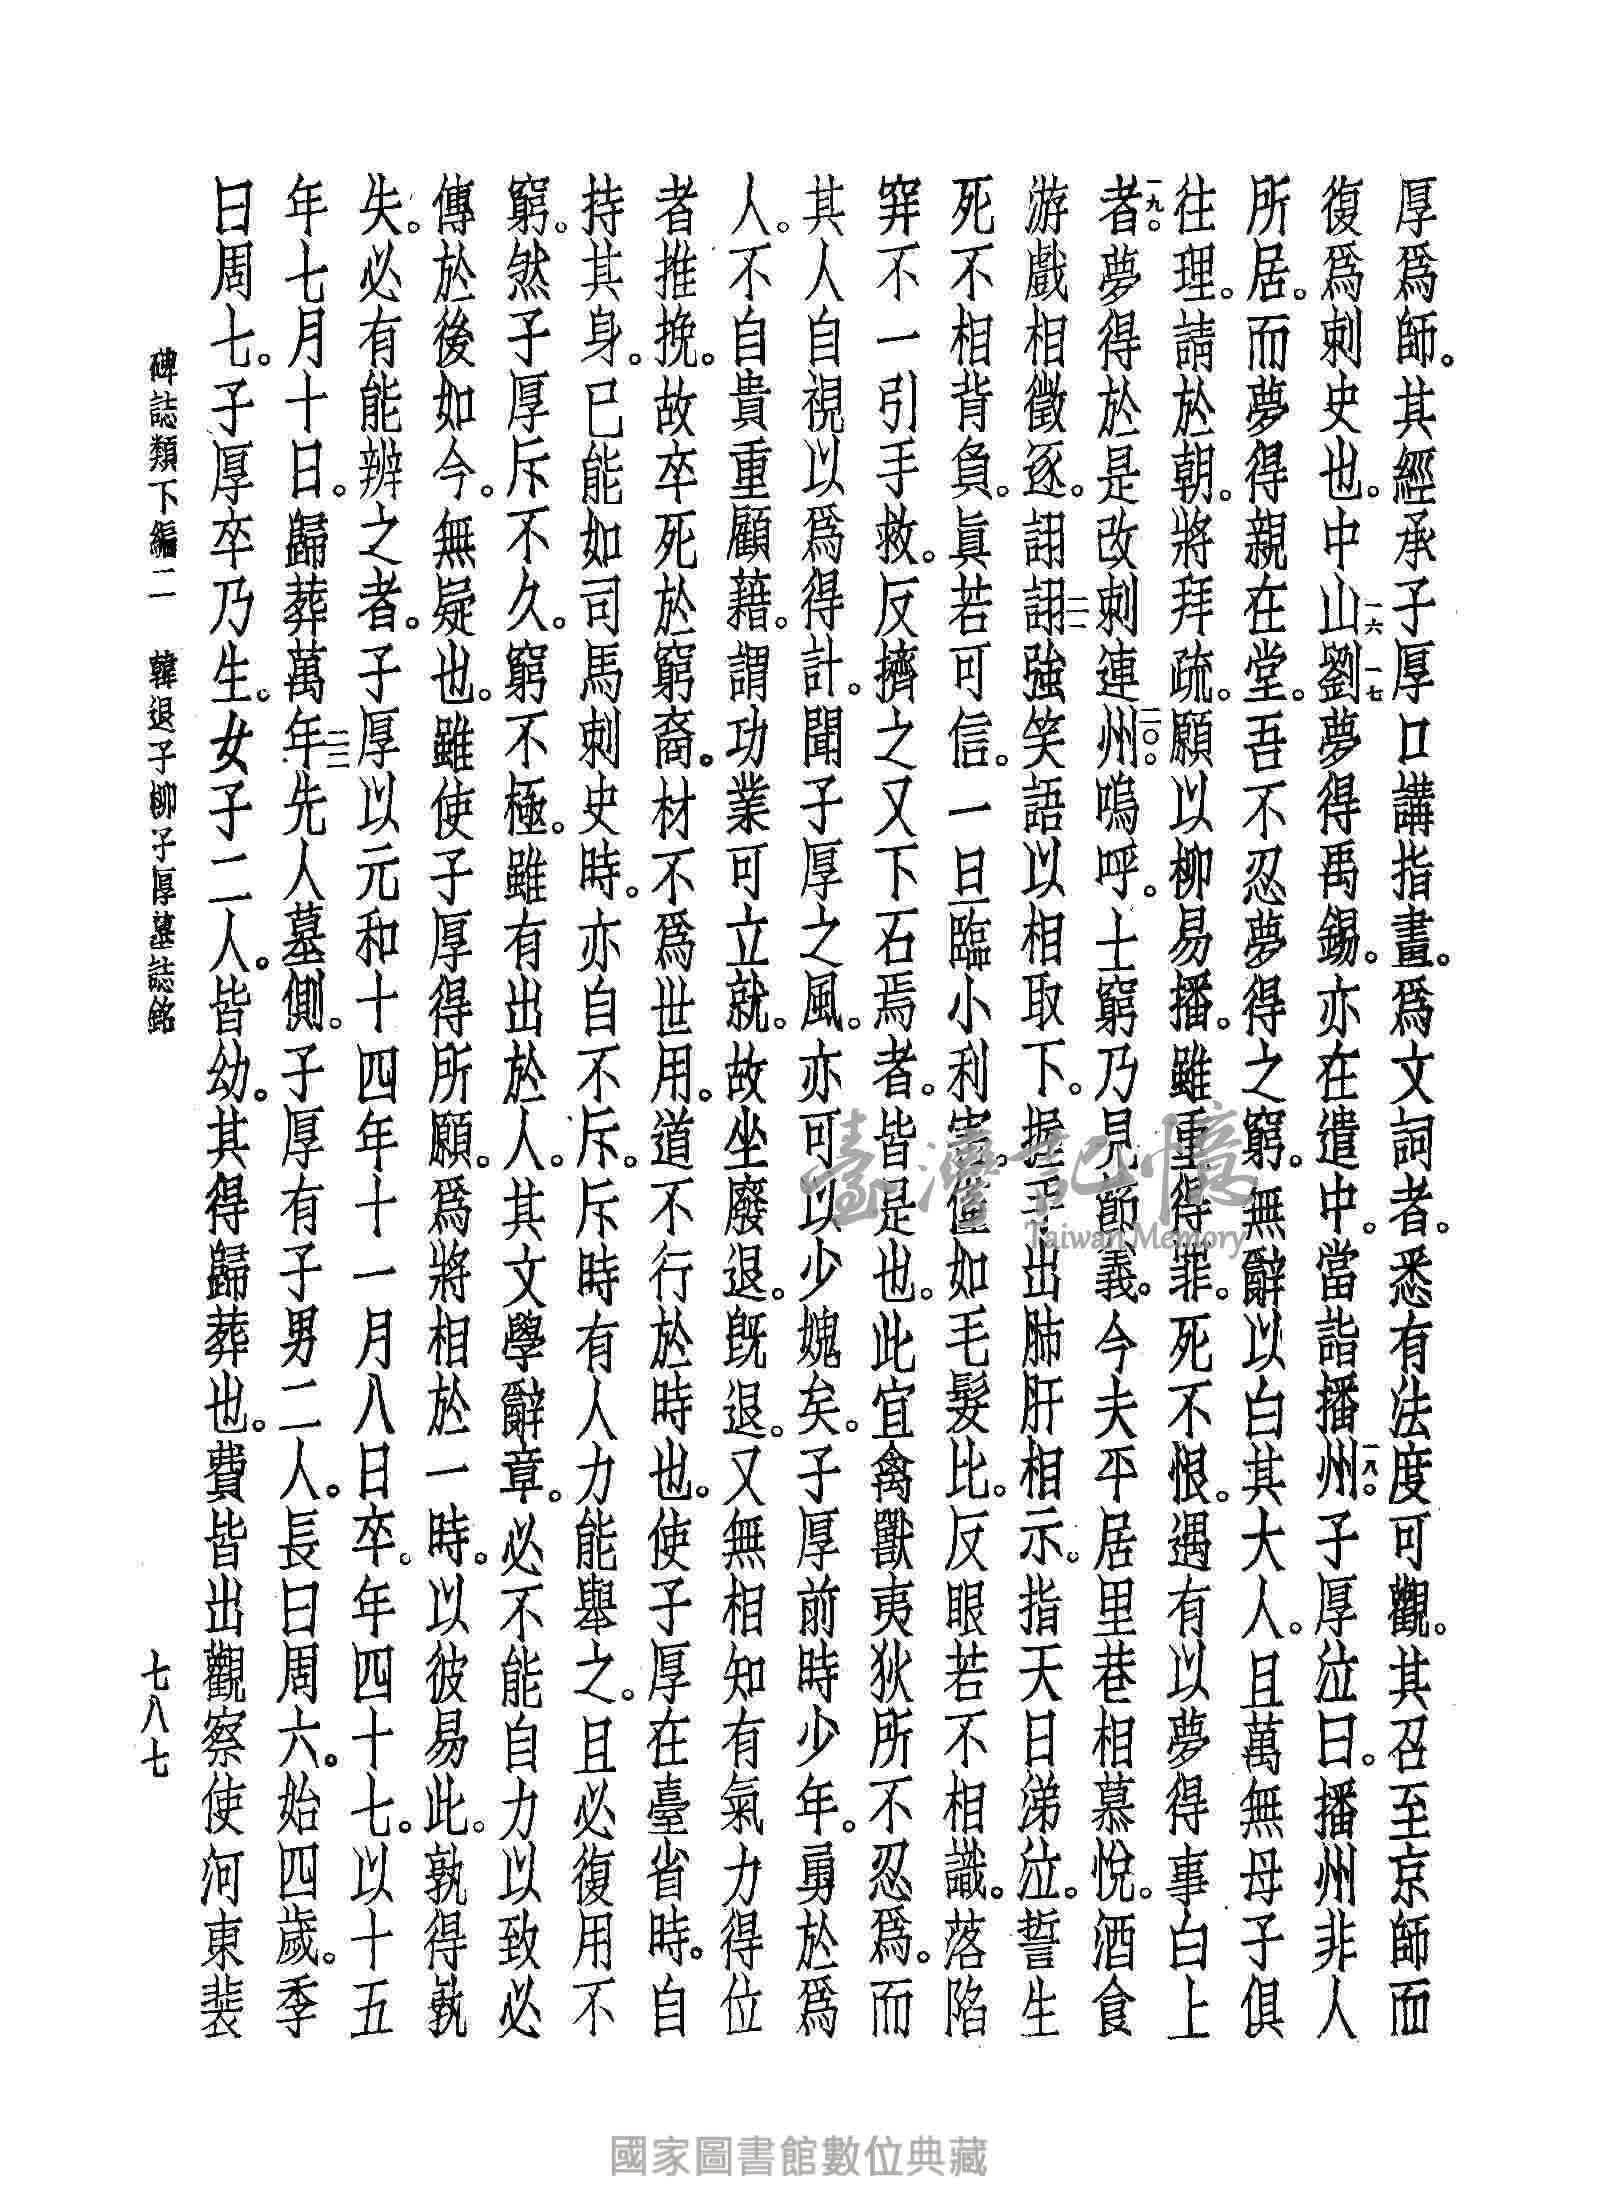 厚爲師。其經承子厚口講指畫。爲文詞者。悉有法度可觀。其召至京師而
復爲刺史也。中山一六劉一七夢得禹錫。亦在遣中。當詣播州一八。子厚泣曰。播州非人
所居。而夢得親在堂。吾不忍夢得之窮。無辭以白其大人。且萬無母子俱
往理。請於朝。將拜疏。願以柳易播。雖重得罪。死不恨。遇有以夢得事白上
者一九。夢得於是改刺連州二〇。嗚呼。士窮乃見節義。今夫平居里巷相慕悅。酒食
游戲相徵逐。詡詡二一強笑語以相取下。握手出肺肝相示。指天日涕泣。誓生
死不相背負。眞若可信。一旦臨小利害。僅如毛髮比。反眼若不相識。落陷
穽不一引手救。反擠之又下石焉者。皆是也。此宜禽獸夷狄所不忍爲。而
其人自視以爲得計。聞子厚之風。亦可以少媿矣。子厚前時少年。勇於爲
人。不自貴重顧藉。謂功業可立就。故坐廢退。旣退。又無相知有氣力得位
者推挽。故卒死於窮裔。材不爲世用。道不行於時也。使子厚在臺省時。自
持其身。已能如司馬刺史時。亦自不斥。斥時有人力能舉之。且必復用不
窮。然子厚斥不久。窮不極。雖有出於人。其文學辭章。必不能自力以致必
傳於後如今。無疑也。雖使子厚得所願。爲將相於一時。以彼易此。孰得孰
失。必有能辨之者。子厚以元和十四年十一月八日卒。年四十七。以十五
年七月十日。歸葬萬年二二先人墓側。子厚有子男二人。長曰周六。始四歲。季
曰周七。子厚卒乃生。女子二人。皆幼。其得歸葬也。費皆出觀察使河東裴
碑誌類下編二　韓退子柳子厚墓誌銘
七八七
臺灣記憶
Taiwan Memory
國家圖書館數位典藏